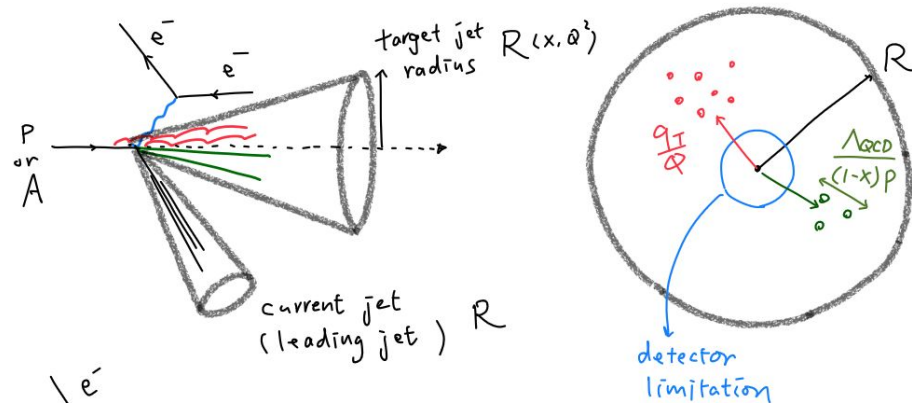 e⁻
e⁻
target jet
radius R(x,Q²)
P
or
A
current jet
(leading jet) R
R
q_T
Q
Λ_QCD
(1-x)P
detector
limitation
e⁻